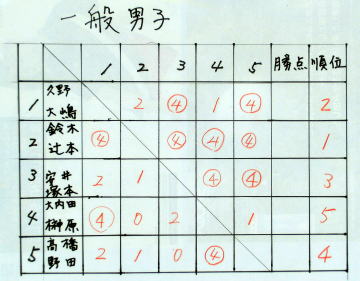 一般男子
1 2 3 4 5 勝点 順位
1 久野 大嶋 2 ④ 1 ④ 2
2 鈴木 辻本 ④ ④ ④ ④ 1
3 安井 塚本 2 1 ④ ④ 3
4 大内田 榊原 ④ 0 2 1 5
5 高橋 野田 2 1 0 ④ 4